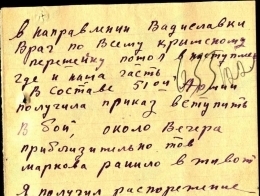 в направлении Вадиславки
Враг по Всему крымскому
перешейку потол в наступлен
где и наша часть
В составе 51ой Армии
получила приказ вступить
В бой, около Вечера
приблизительно тов
маркова ранило в живот
Я получил распорежение